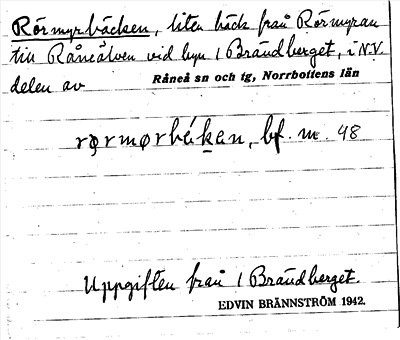 Rörmyrbäcken, liten bäck från Rörmyran
till Råneälven vid byn 1 Brändberget, i N.V.
delen av Råneå sn och tg, Norrbottens län
rørmørbéken, bf. m. 48
Uppgiften från 1 Brändberget.
EDVIN BRÄNNSTRÖM 1942.